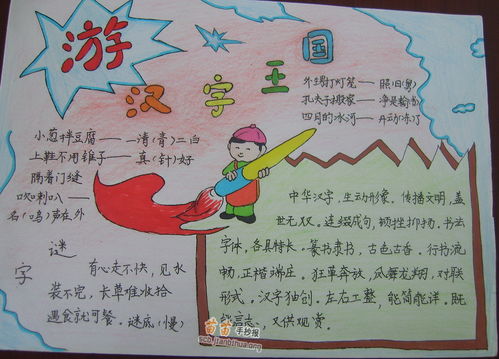 游汉字王国
外甥打灯笼——照旧(舅)
孔夫子搬家——净是输(书)
四月的冰河——开动(冻)了
小葱拌豆腐——清(青)二白
上鞋不用锥子——真(针)好
隔着门缝
吹喇叭——
名(鸣)声在外
字谜
有心走不快,见水
装不完,长草难收拾
遇食就可餐。谜底:(慢)
中华汉字,生动形象,传播文明,盖
世无双。连缀成句,顿挫抑扬。书法
字体,各具特长。篆书隶书,古色古香。行书流
畅,正楷端庄。狂草奔放,龙翔。对联
形式,汉字独创。左右工整,能简能详。既
能言志,又供观赏。
苗苗手抄报
scb.jianbihua.org